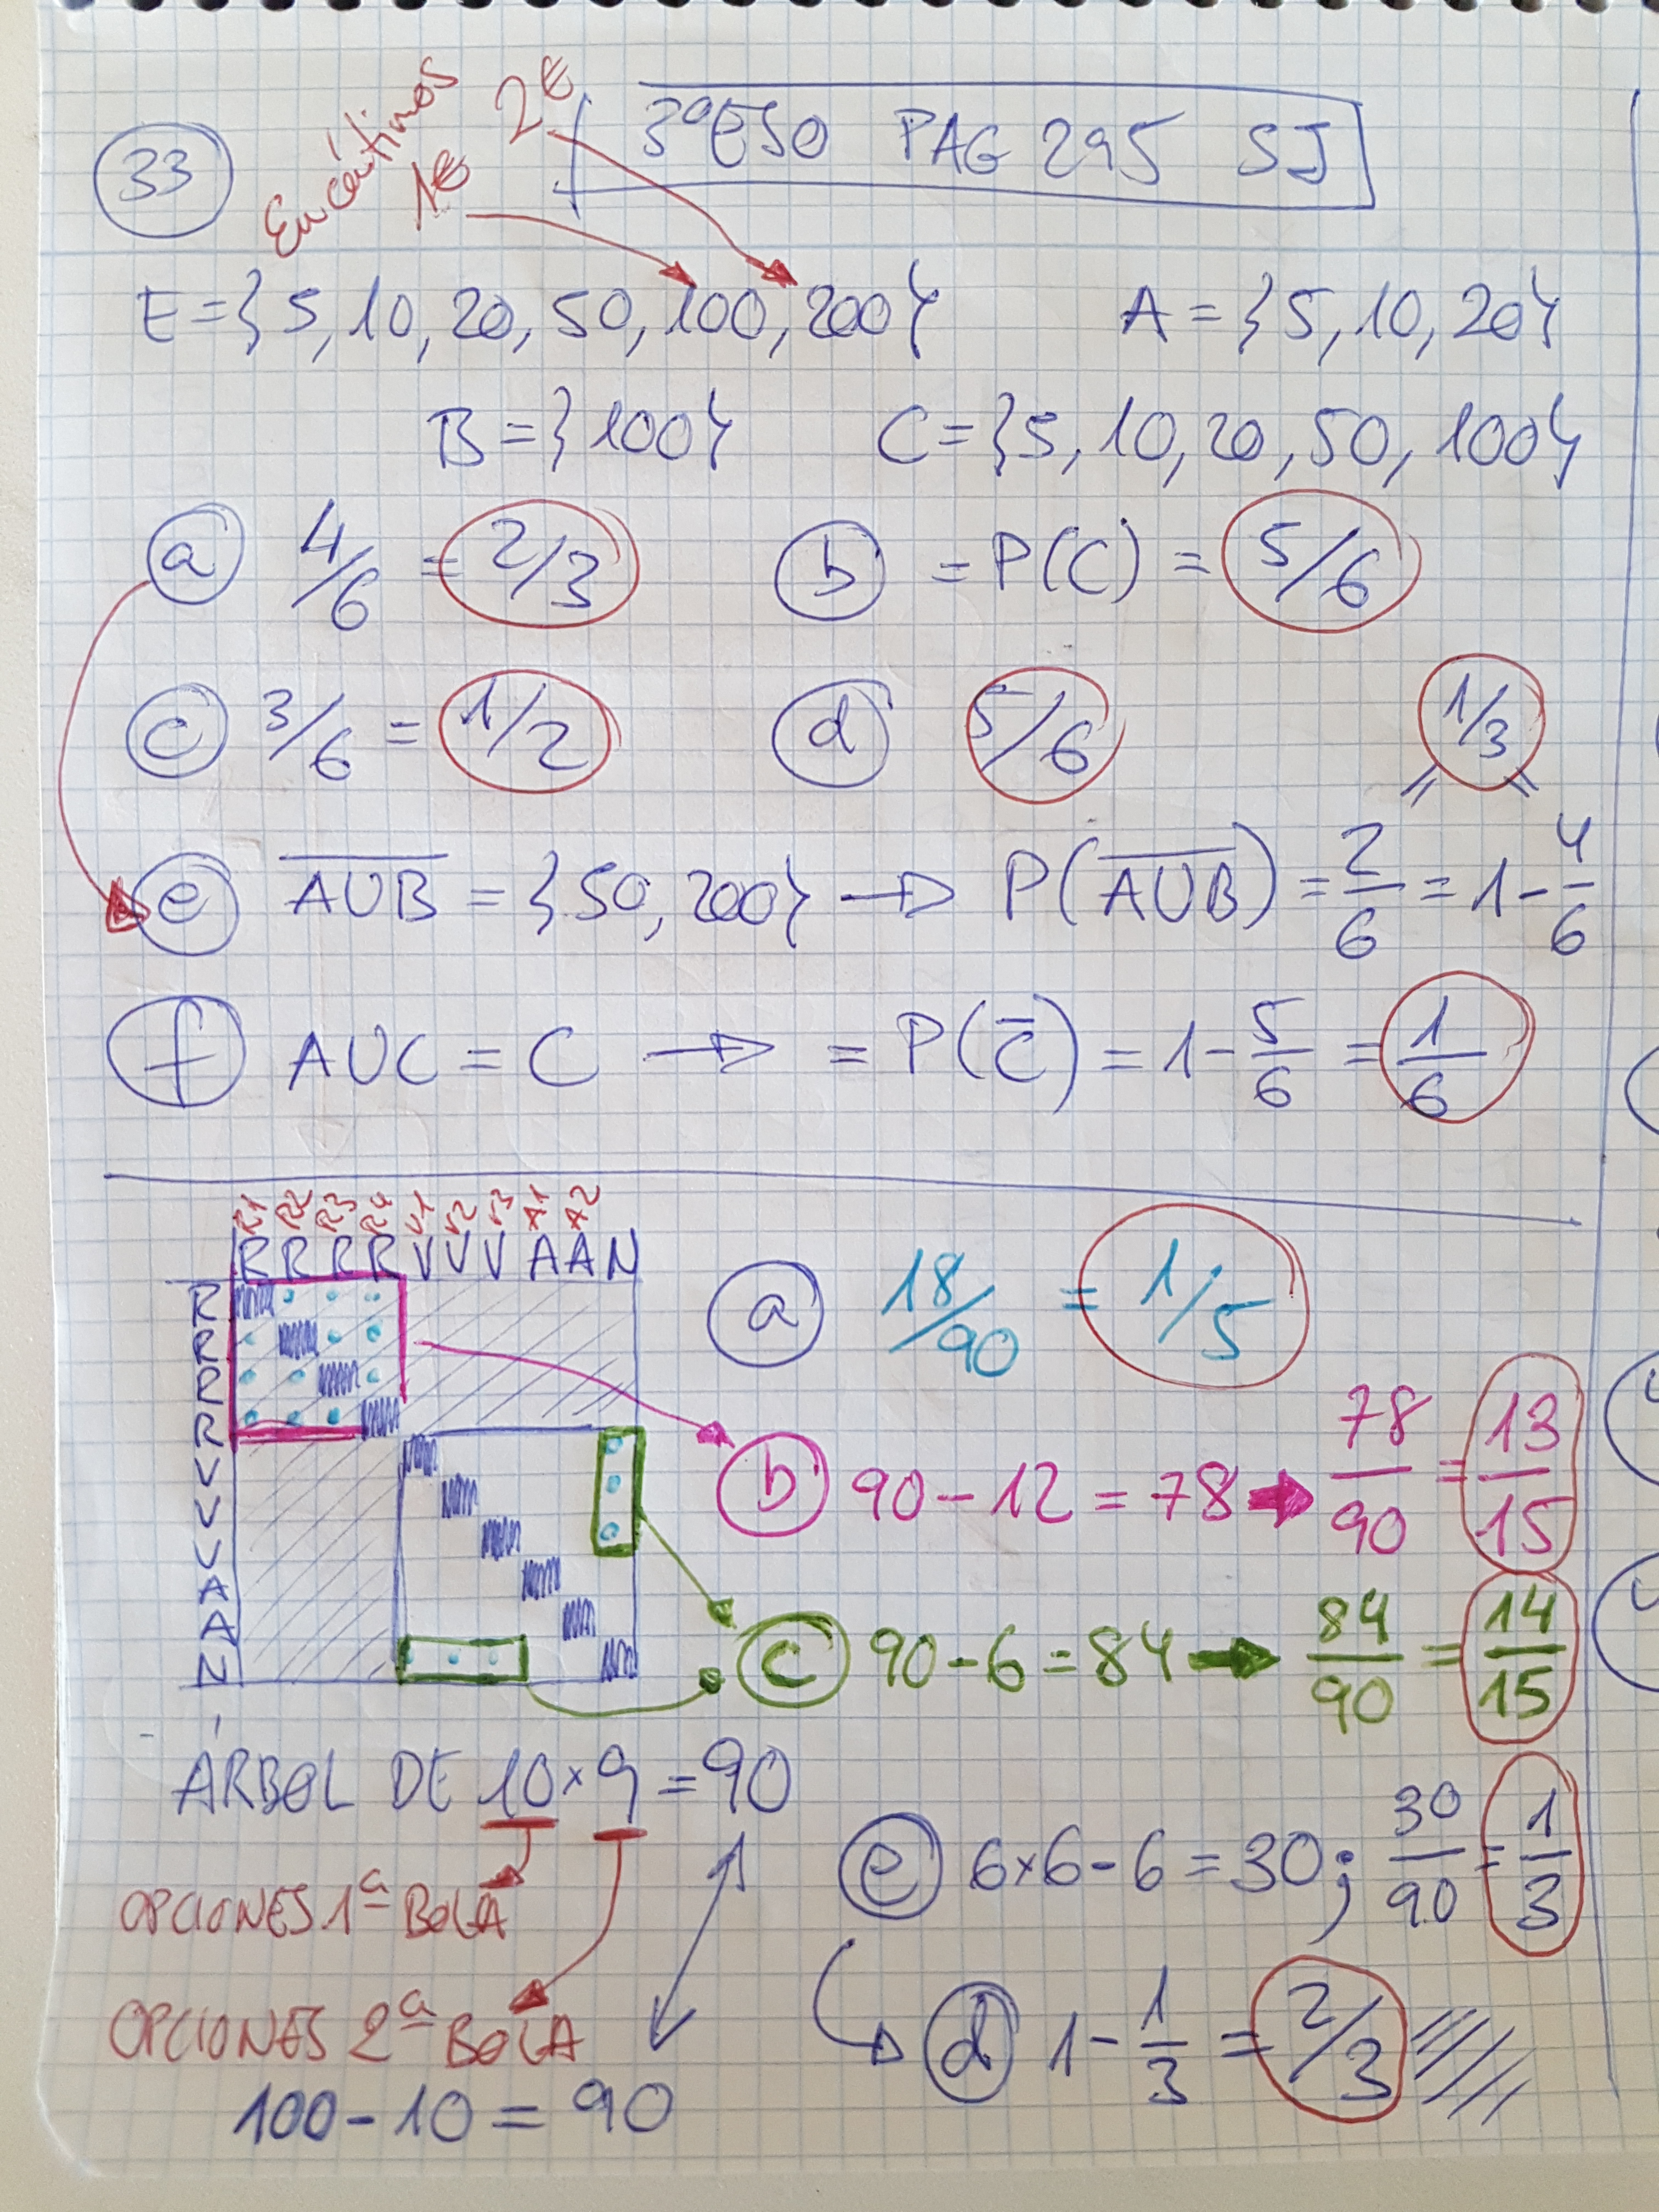 33
En céntimos
1€
2€
3ºESO PAG 295 SJ
E={5, 10, 20, 50, 100, 200} A={5, 10, 20}
B={100} C={5, 10, 20, 50, 100}
a 4/6 = 2/3 b = P(C) = 5/6
c 3/6 = 1/2 d 5/6
1/3
e A̅U̅B̅ = {50, 200} → P(A̅U̅B̅) = 2/6 = 1 - 4/6
f AUC = C → = P(C̅) = 1 - 5/6 = 1/6
R1 R2 R3 R4 V1 V2 V3 A1 A2
R R R R V V V A A N
R
R
R
R
V
V
V
A
A
N
a 18/90 = 1/5
b 90-12=78 → 78/90 = 13/15
c 90-6=84 → 84/90 = 14/15
ÁRBOL DE 10×9=90
OPCIONES 1ª BOLA
OPCIONES 2ª BOLA
100-10=90
e 6×6-6=30; 30/90 = 1/3
d 1 - 1/3 = 2/3